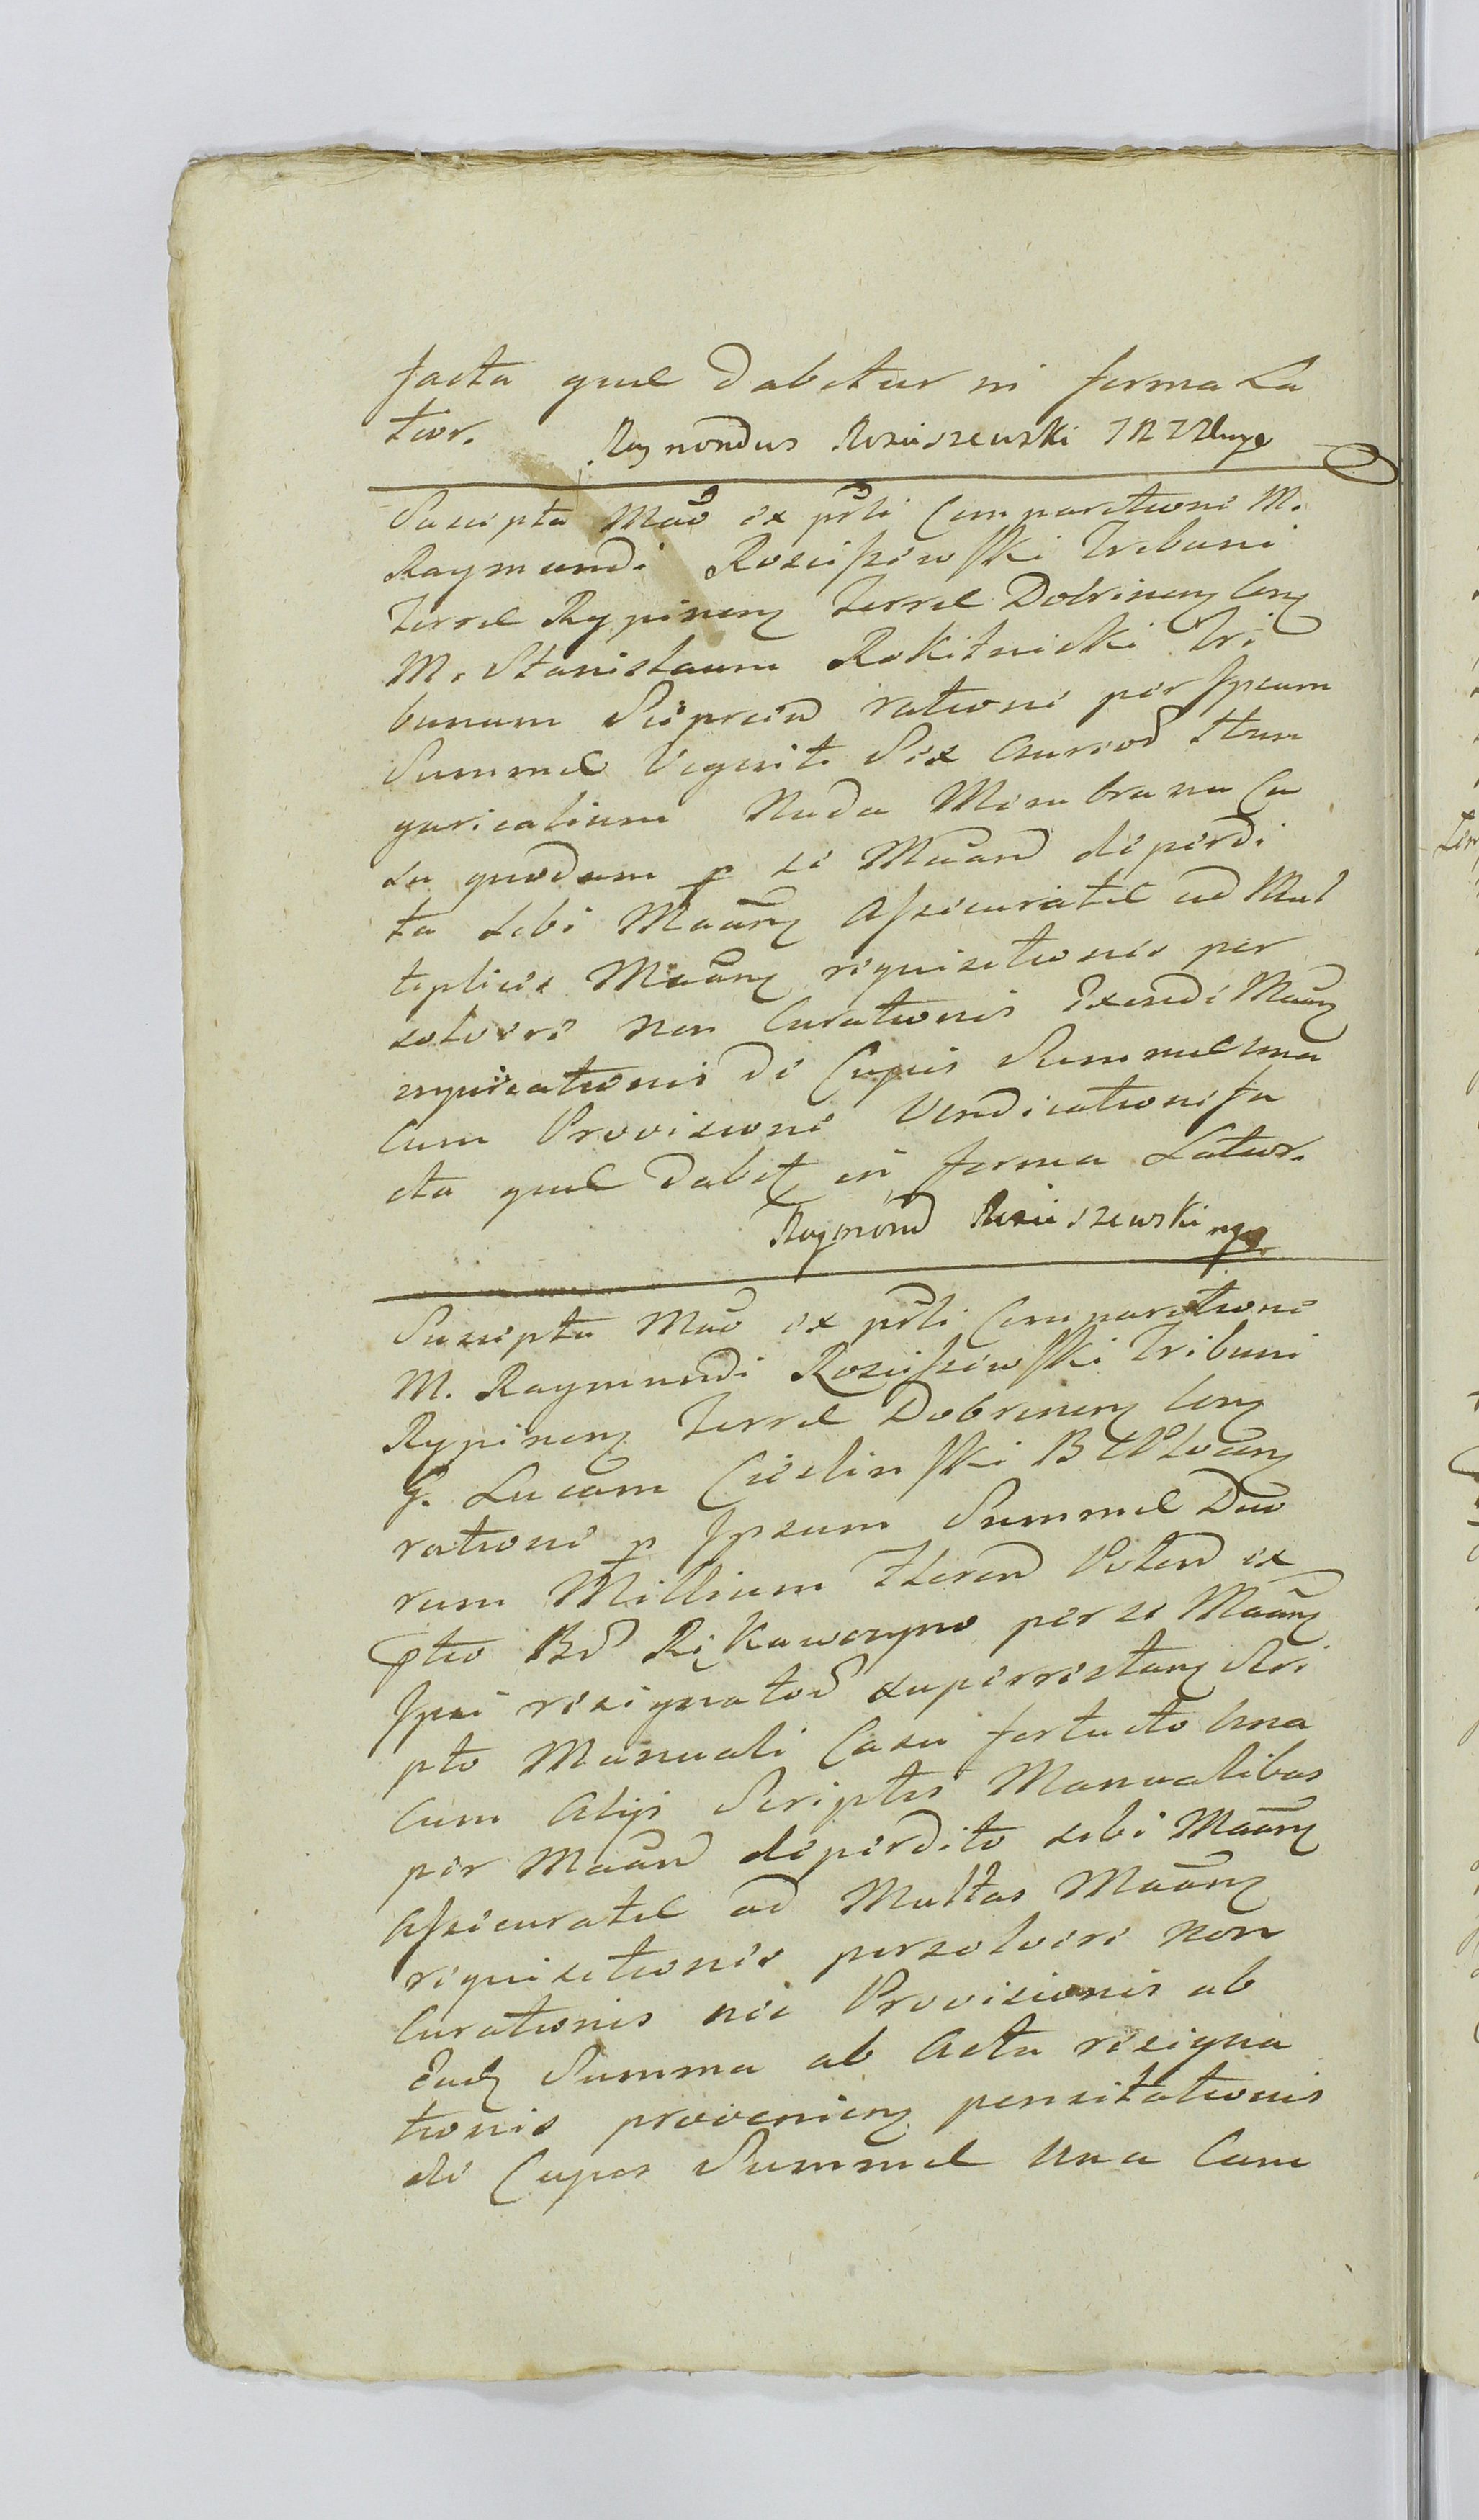 facta quae dabetur in forma La
tior. Raymondus Rosciszewski
Suscepta Mão ex psti Comparitione M.
Raymundi Roscißewski Tribuni
Terrae Rypinen Terrae Dobrinen Con
M. Stanislaum Rokitnicki Tri
bunum Sieprcen ratione per Ipsum
Summae Viginti Sex Aureor Hun
garicalium Nuda Membrana Ca
su quodam p se Mãand deperdi
ta sibi Mãan Assecuratae ad Mul
tiplices Mãan requisitiones per
solvere non Curationis Exinde Mãan
injuriationis de Cujus Summae una
Cum Provisione Vendicatione fa
cta quae dabet in forma Latior.
Raymond Rosciszewski mp
Suscepta Mão ex psti Comparitione
M. Raymundi Roscißewski Tribuni
Rypinen Terrae Dobrinen Con
G. Lucam Cieslinski
ratione p Ipsum Summae Duo
rum Millium Floren Polon ex
ptio Br Rękawczyno per se Mãan
Ipsi resignator superrestan Scri
pto Manuali Casu fortuito una
Cum Alys Scriptis Manualibus
per Mãand deperdito sibi Mãan
Assecuratae ad Multas Mãan
requisitiones persolvere non
Curationis nec Provisionis ab
Ead Summa ab Actu resigna
tionis provenien pensitationis
de Cujus Summae una Cum